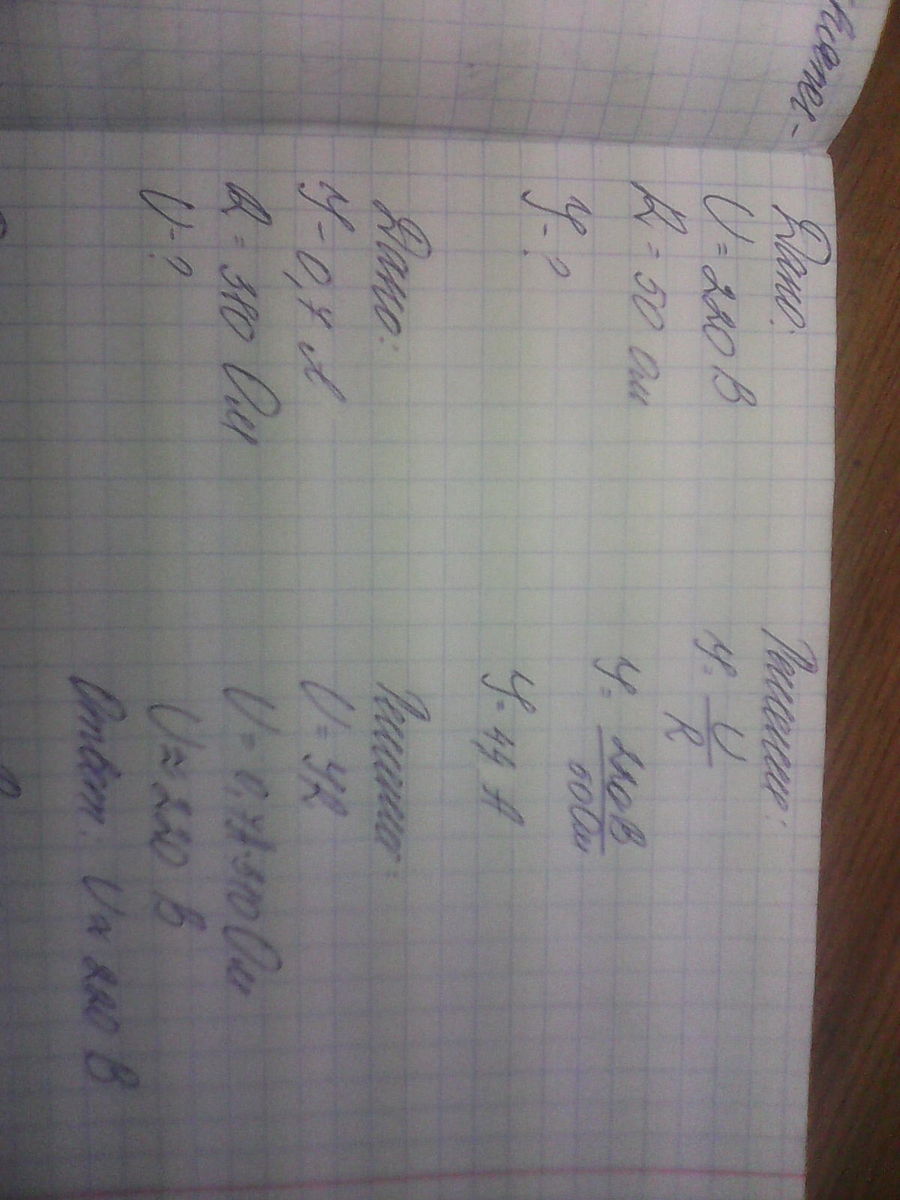 Дано:
U = 220 В
R = 50 Ом
I - ?
Решение:
I = U/R
I = 220 В/50 Ом
I = 4,4 А
Дано:
I - 0,7 А
R = 310 Ом
U - ?
Решение:
U = IR
U = 0,7А·310 Ом
U ≈ 220 В
Ответ. U ≈ 220 В